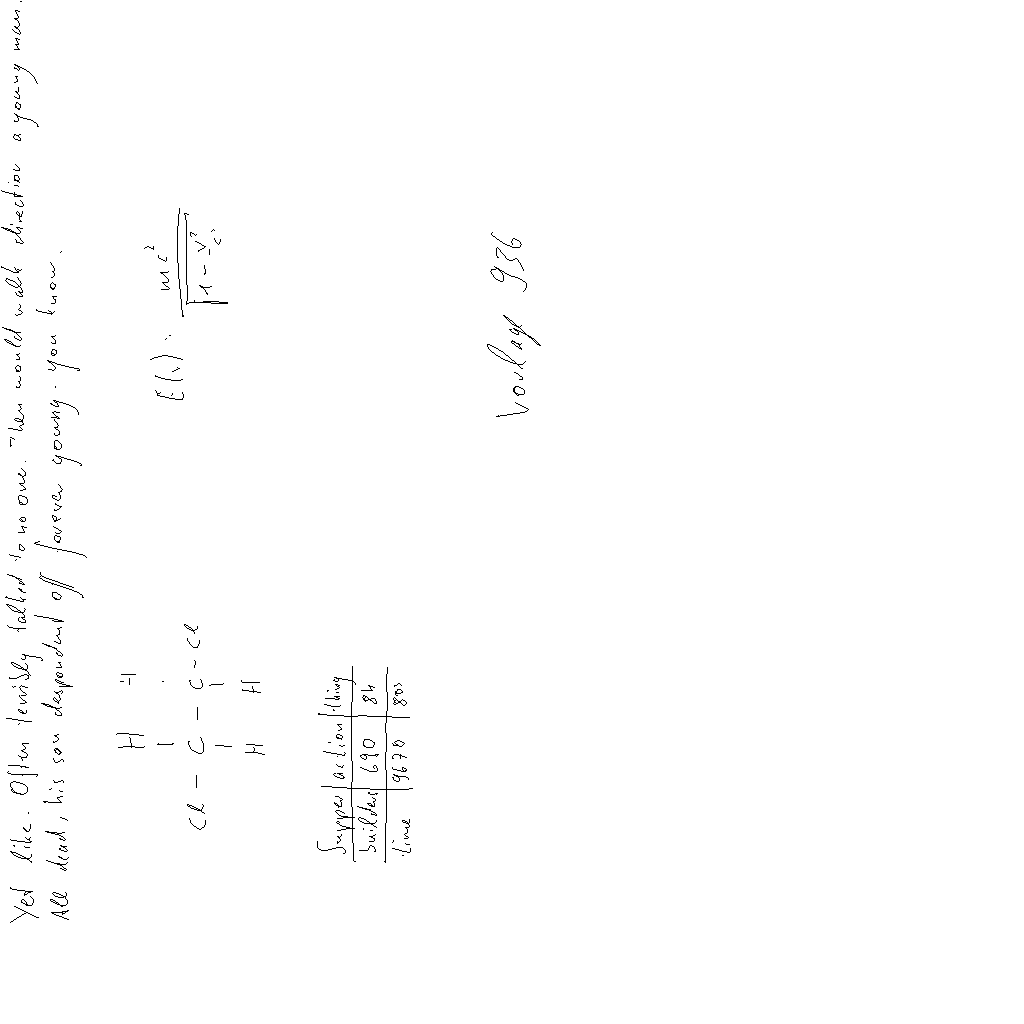 Yet like. Often terribly talked to no one. Then would walk direction a young man.
All dead, his son despondent off forever young. you know.
H H
Cl - C - C - Cl
H H
E(v) = mc² / √1 - v²/c²
Supper action thing
builders 690 84
time 9670 803
Vorlage 936